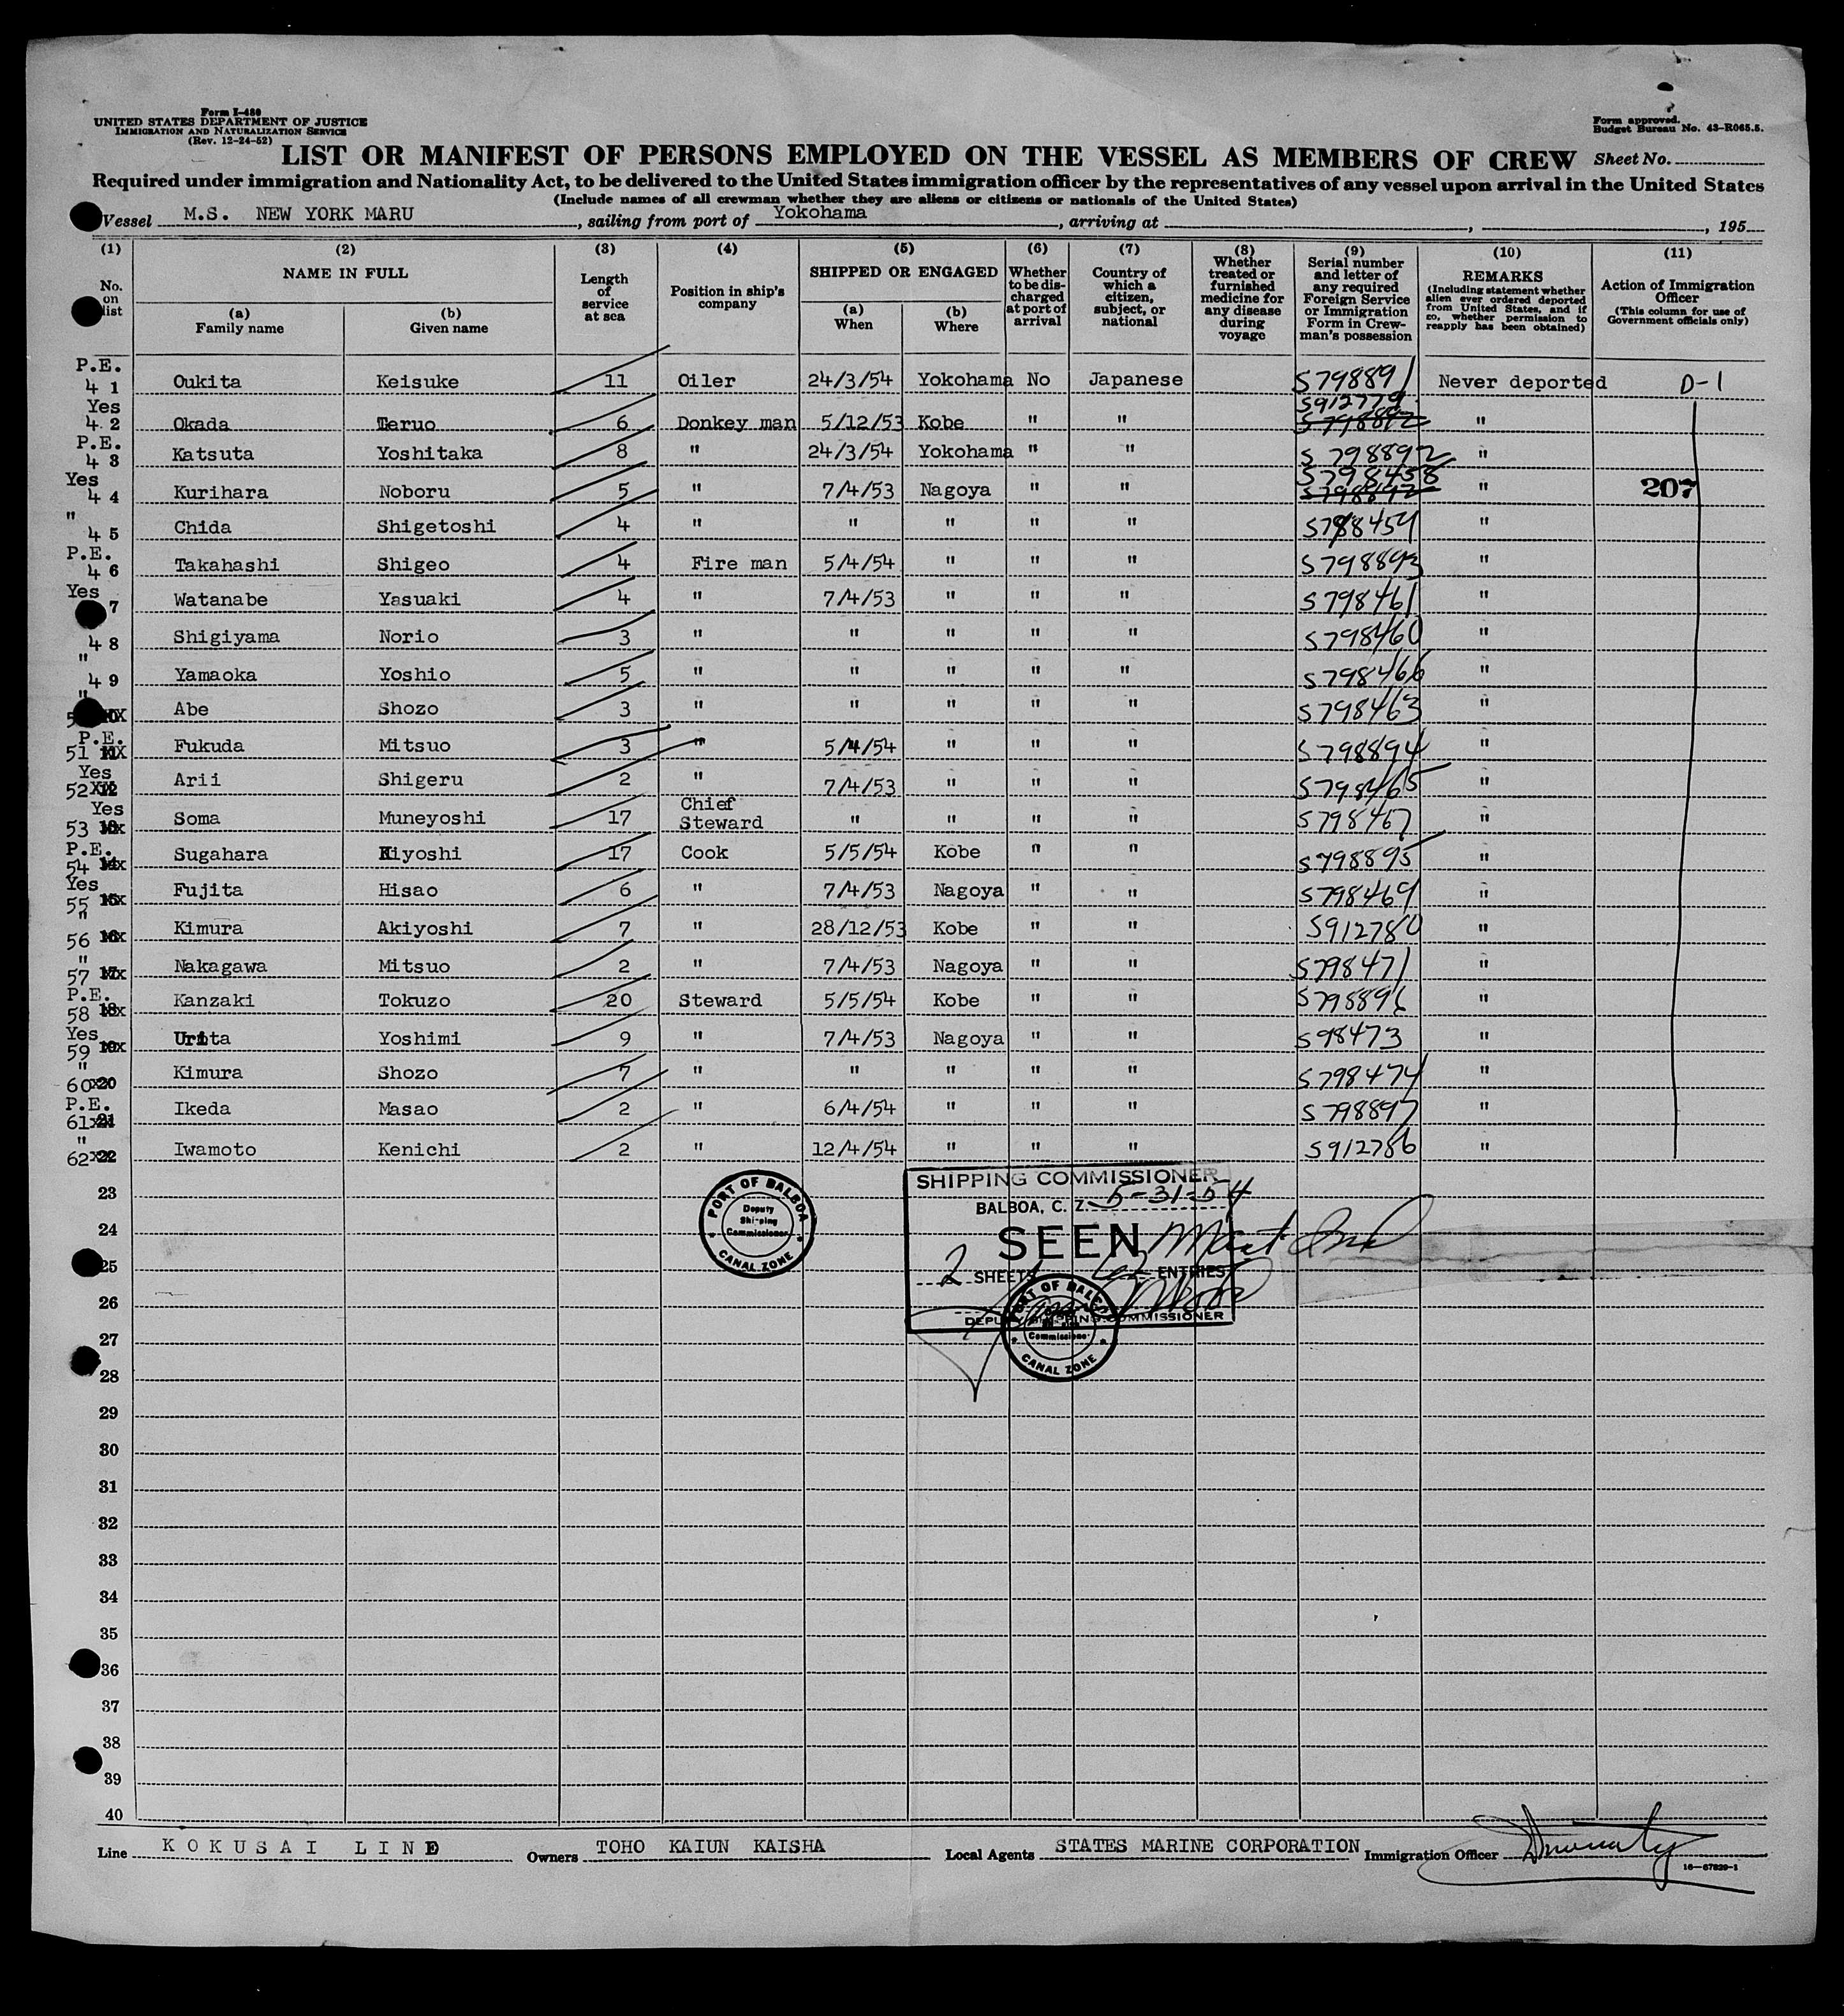 Form I-480
UNITED STATES DEPARTMENT OF JUSTICE
IMMIGRATION AND NATURALIZATION SERVICE
(Rev. 12-24-52)
Form approved.
Budget Bureau No. 43-R065.5.
LIST OR MANIFEST OF PERSONS EMPLOYED ON THE VESSEL AS MEMBERS OF CREW Sheet No.
Required under immigration and Nationality Act, to be delivered to the United States immigration officer by the representatives of any vessel upon arrival in the United States
(Include names of all crewman whether they are aliens or citizens or nationals of the United States)
Vessel M.S. NEW YORK MARU, sailing from port of Yokohama, arriving at , , 195
(1) (2) (3) (4) (5) (6) (7) (8) (9) (10) (11)
No. on list
NAME IN FULL
(a) Family name
(b) Given name
Length of service at sea
Position in ship's company
SHIPPED OR ENGAGED
(a) When
(b) Where
Whether to be discharged at port of arrival
Country of which a citizen, subject, or national
Whether treated or furnished medicine for any disease during voyage
Serial number and letter of any required Foreign Service or Immigration Form in Crewman's possession
REMARKS
(Including statement whether alien ever ordered deported from United States, and if so, whether permission to reapply has been obtained)
Action of Immigration Officer
(This column for use of Government officials only)
P.E. 4 1 Oukita Keisuke 11 Oiler 24/3/54 Yokohama No Japanese S798891 Never deported D-1
Yes 4 2 Okada Teruo 6 Donkey man 5/12/53 Kobe " " S912779 "
P.E. 4 3 Katsuta Yoshitaka 8 " 24/3/54 Yokohama " " S798892 "
Yes 4 4 Kurihara Noboru 5 " 7/4/53 Nagoya " " S798458 " 207
" 4 5 Chida Shigetoshi 4 " " " " " S798459 "
P.E. 4 6 Takahashi Shigeo 4 Fire man 5/4/54 " " " S798893 "
Yes 7 Watanabe Yasuaki 4 " 7/4/53 " " " S798461 "
4 8 Shigiyama Norio 3 " " " " " S798460 "
" 4 9 Yamaoka Yoshio 5 " " " " " S798466 "
" Abe Shozo 3 " " " " " S798463 "
P.E. 51 Fukuda Mitsuo 3 " 5/4/54 " " " S798894 "
Yes 52 Arii Shigeru 2 " 7/4/53 " " " S798465 "
Yes 53 Soma Muneyoshi 17 Chief Steward " " " " S798467 "
P.E. 54 Sugahara Kiyoshi 17 Cook 5/5/54 Kobe " " S798895 "
Yes 55 Fujita Hisao 6 " 7/4/53 Nagoya " " S798469 "
" 56 Kimura Akiyoshi 7 " 28/12/53 Kobe " " S912780 "
" 57 Nakagawa Mitsuo 2 " 7/4/53 Nagoya " " S798471 "
P.E. 58 Kanzaki Tokuzo 20 Steward 5/5/54 Kobe " " S798896 "
Yes 59 Urita Yoshimi 9 " 7/4/53 Nagoya " " S98473 "
" 60 Kimura Shozo 7 " " " " " S798474 "
P.E. 61 Ikeda Masao 2 " 6/4/54 " " " S798897 "
" 62 Iwamoto Kenichi 2 " 12/4/54 " " " S912786 "
23
24
25
26
27
28
29
30
31
32
33
34
35
36
37
38
39
40
PORT OF BALBOA
Deputy Shipping Commissioner
CANAL ZONE
SHIPPING COMMISSIONER
BALBOA, C. Z. 5-31-54
SEEN
2 SHEETS 62 ENTRIES
DEPUTY SHIPPING COMMISSIONER
PORT OF BALBOA
Commissioner
CANAL ZONE
Line KOKUSAI LINE Owners TOHO KAIUN KAISHA Local Agents STATES MARINE CORPORATION Immigration Officer
16-67829-1